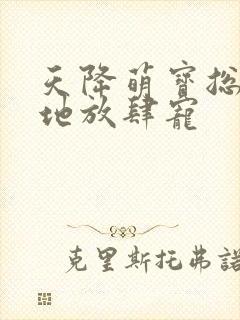 天降萌寶總
地放肆寵
克里斯托弗諾